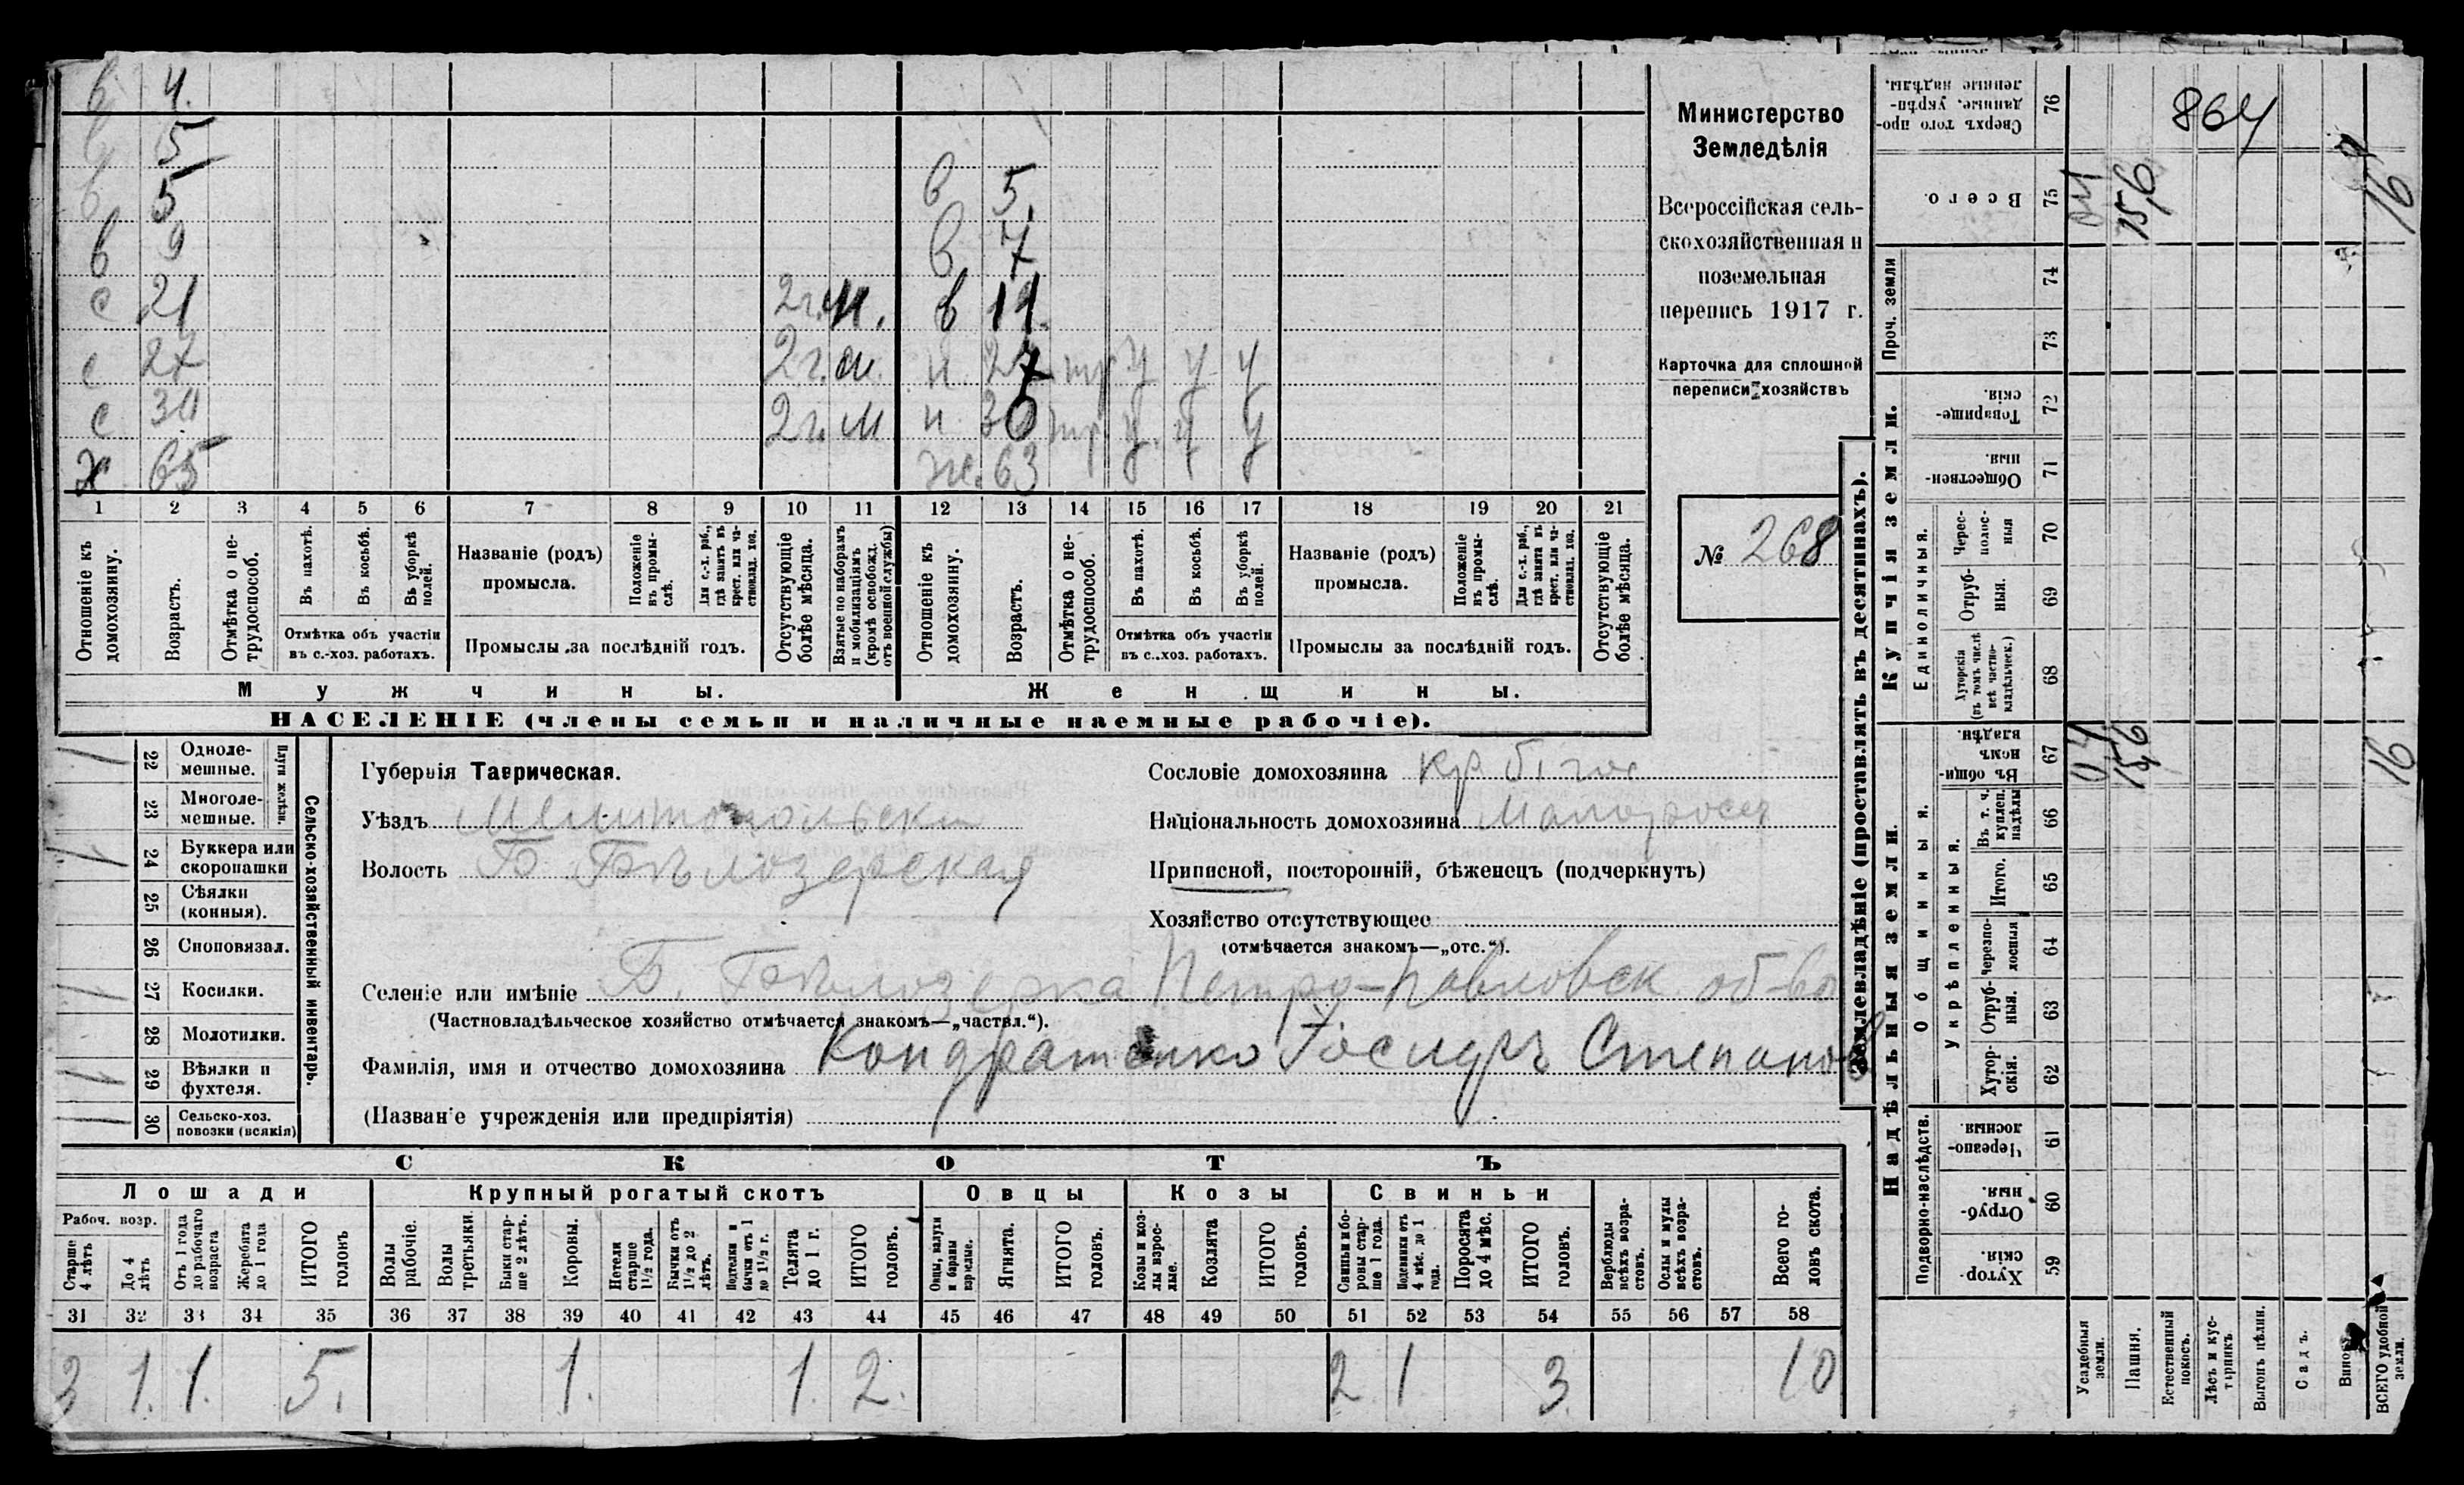 в 4.
в 5
в 5 в 5.
в 9 в 7
с 21 2 г. м. в 11.
с 27 2 г. м. н. 27 тр у у у
с 30 2 г. м н. 30 тр. у. у у
х 65 ж. 63
1 2 3 4 5 6 7 8 9 10 11 12 13 14 15 16 17 18 19 20 21
Отношеніе къ домохозяину.
Возрастъ.
Отмѣтка о не-трудоспособ.
Въ пахотѣ.
Въ косьбѣ.
Въ уборкѣ полей.
Отмѣтка объ участіи
въ с.-хоз. работахъ.
Названіе (родъ)
промысла.
Положеніе въ промы-слѣ.
Для с.-х. раб., гдѣ занятъ въ крест. или ча-стновлад. хоз.
Промыслы за послѣдній годъ.
Отсутствующіе болѣе мѣсяца.
Взятые по наборамъ и мобилизаціямъ (кромѣ освобожд. отъ военной службы)
Отношеніе къ домохозяину.
Возрастъ.
Отмѣтка о не-трудоспособ.
Въ пахотѣ.
Въ косьбѣ.
Въ уборкѣ полей.
Отмѣтка объ участіи
въ с.-хоз. работахъ.
Названіе (родъ)
промысла.
Положеніе въ промы-слѣ.
Для с.-х. раб., гдѣ занятъ въ крест. или ча-стновлад. хоз.
Промыслы за послѣдній годъ.
Отсутствующіе болѣе мѣсяца.
Мужчины. Женщины.
НАСЕЛЕНІЕ (члены семьи и наличные наемные рабочіе).
Министерство
Земледѣлія
Всероссійская сель-
скохозяйственная и
поземельная
перепись 1917 г.
Карточка для сплошной
переписи хозяйствъ
№ 268
Сельско-хозяйственный инвентарь.
Плуги желѣзн.
22 Одноле-мешные.
23 Многоле-мешные.
24 Буккера или скоропашки
25 Сѣялки (конныя).
26 Сноповязал.
27 Косилки.
28 Молотилки.
29 Вѣялки и фухтеля.
30 Сельско-хоз. повозки (всякія)
Губернія Таврическая.
Уѣздъ Мелитопольски
Волость Б Бѣлозерская
Сословіе домохозяина кр.
Національность домохозяина Малоросс
Приписной, посторонній, бѣженецъ (подчеркнуть)
Хозяйство отсутствующее
(отмѣчается знакомъ—„отс.“).
Селеніе или имѣніе Б. Бѣлозерка Петро-Павловск об-во
(Частновладѣльческое хозяйство отмѣчается знакомъ—„частвл.“).
Фамилія, имя и отчество домохозяина Кондратенко Степанов
(Названіе учрежденія или предпріятія)
СКОТЪ
Лошади Крупный рогатый скотъ Овцы Козы Свиньи
Рабоч. возр.
Старше 4 лѣтъ
До 4 лѣтъ
Отъ 1 года до рабочаго возраста
Жеребята до 1 года
ИТОГО головъ
Волы рабочіе.
Волы третьяки.
Быки стар-ше 2 лѣтъ.
Коровы.
Нетели старше 1½ года.
Бычки отъ 1½ до 2 лѣтъ.
Подтелки и бычки отъ 1 до 1½ г.
Телята до 1 г.
ИТОГО головъ.
Овцы, валухи и бараны взрослые.
Ягнята.
ИТОГО головъ.
Козы и коз-лы взрос-лые.
Козлята
ИТОГО головъ.
Свиньи и бо-ровы стар-ше 1 года.
Подсвинки отъ 4 мѣс. до 1 года.
Поросята до 4 мѣс.
ИТОГО головъ.
Верблюды всѣхъ возра-стовъ.
Ослы и мулы всѣхъ возра-стовъ.
Всего го-ловъ скота.
31 32 33 34 35 36 37 38 39 40 41 42 43 44 45 46 47 48 49 50 51 52 53 54 55 56 57 58
3 1. 1. 5. 1. 1. 2. 2 1 3. 10
Землевладѣніе (проставлять въ десятинахъ).
Купчія земли.
Надѣльныя земли.
Проч. земли
Единоличныя.
Общинныя.
Укрѣпленныя.
Подворно-наслѣдств.
Сверхъ того про-данные, укрѣп-ленные надѣлы. 76 864
Всего. 75 0,4 15,6 16
74
73
Товарище-скія. 72
Обществен-ныя. 71
Черес-полос-ныя 70
Отруб-ныя. 69
Хуторскія (въ томъ числѣ всѣ частно-владѣльческ.) 68
Въ общин-номъ владѣн. 67 0,4 15,6 16
Въ т. ч. куплен. надѣлы 66
Итого. 65
Черезпо-лосныя 64
Отруб-ныя. 63
Хутор-скія. 62
Черезпо-лосныя. 61
Отруб-ныя. 60
Хутор-скія. 59
Усадебныя земли.
Пашня.
Естественный покосъ.
Лѣсъ и кус-тарникъ.
Выгонъ цѣлин.
Садъ.
ВСЕГО удобной земли.